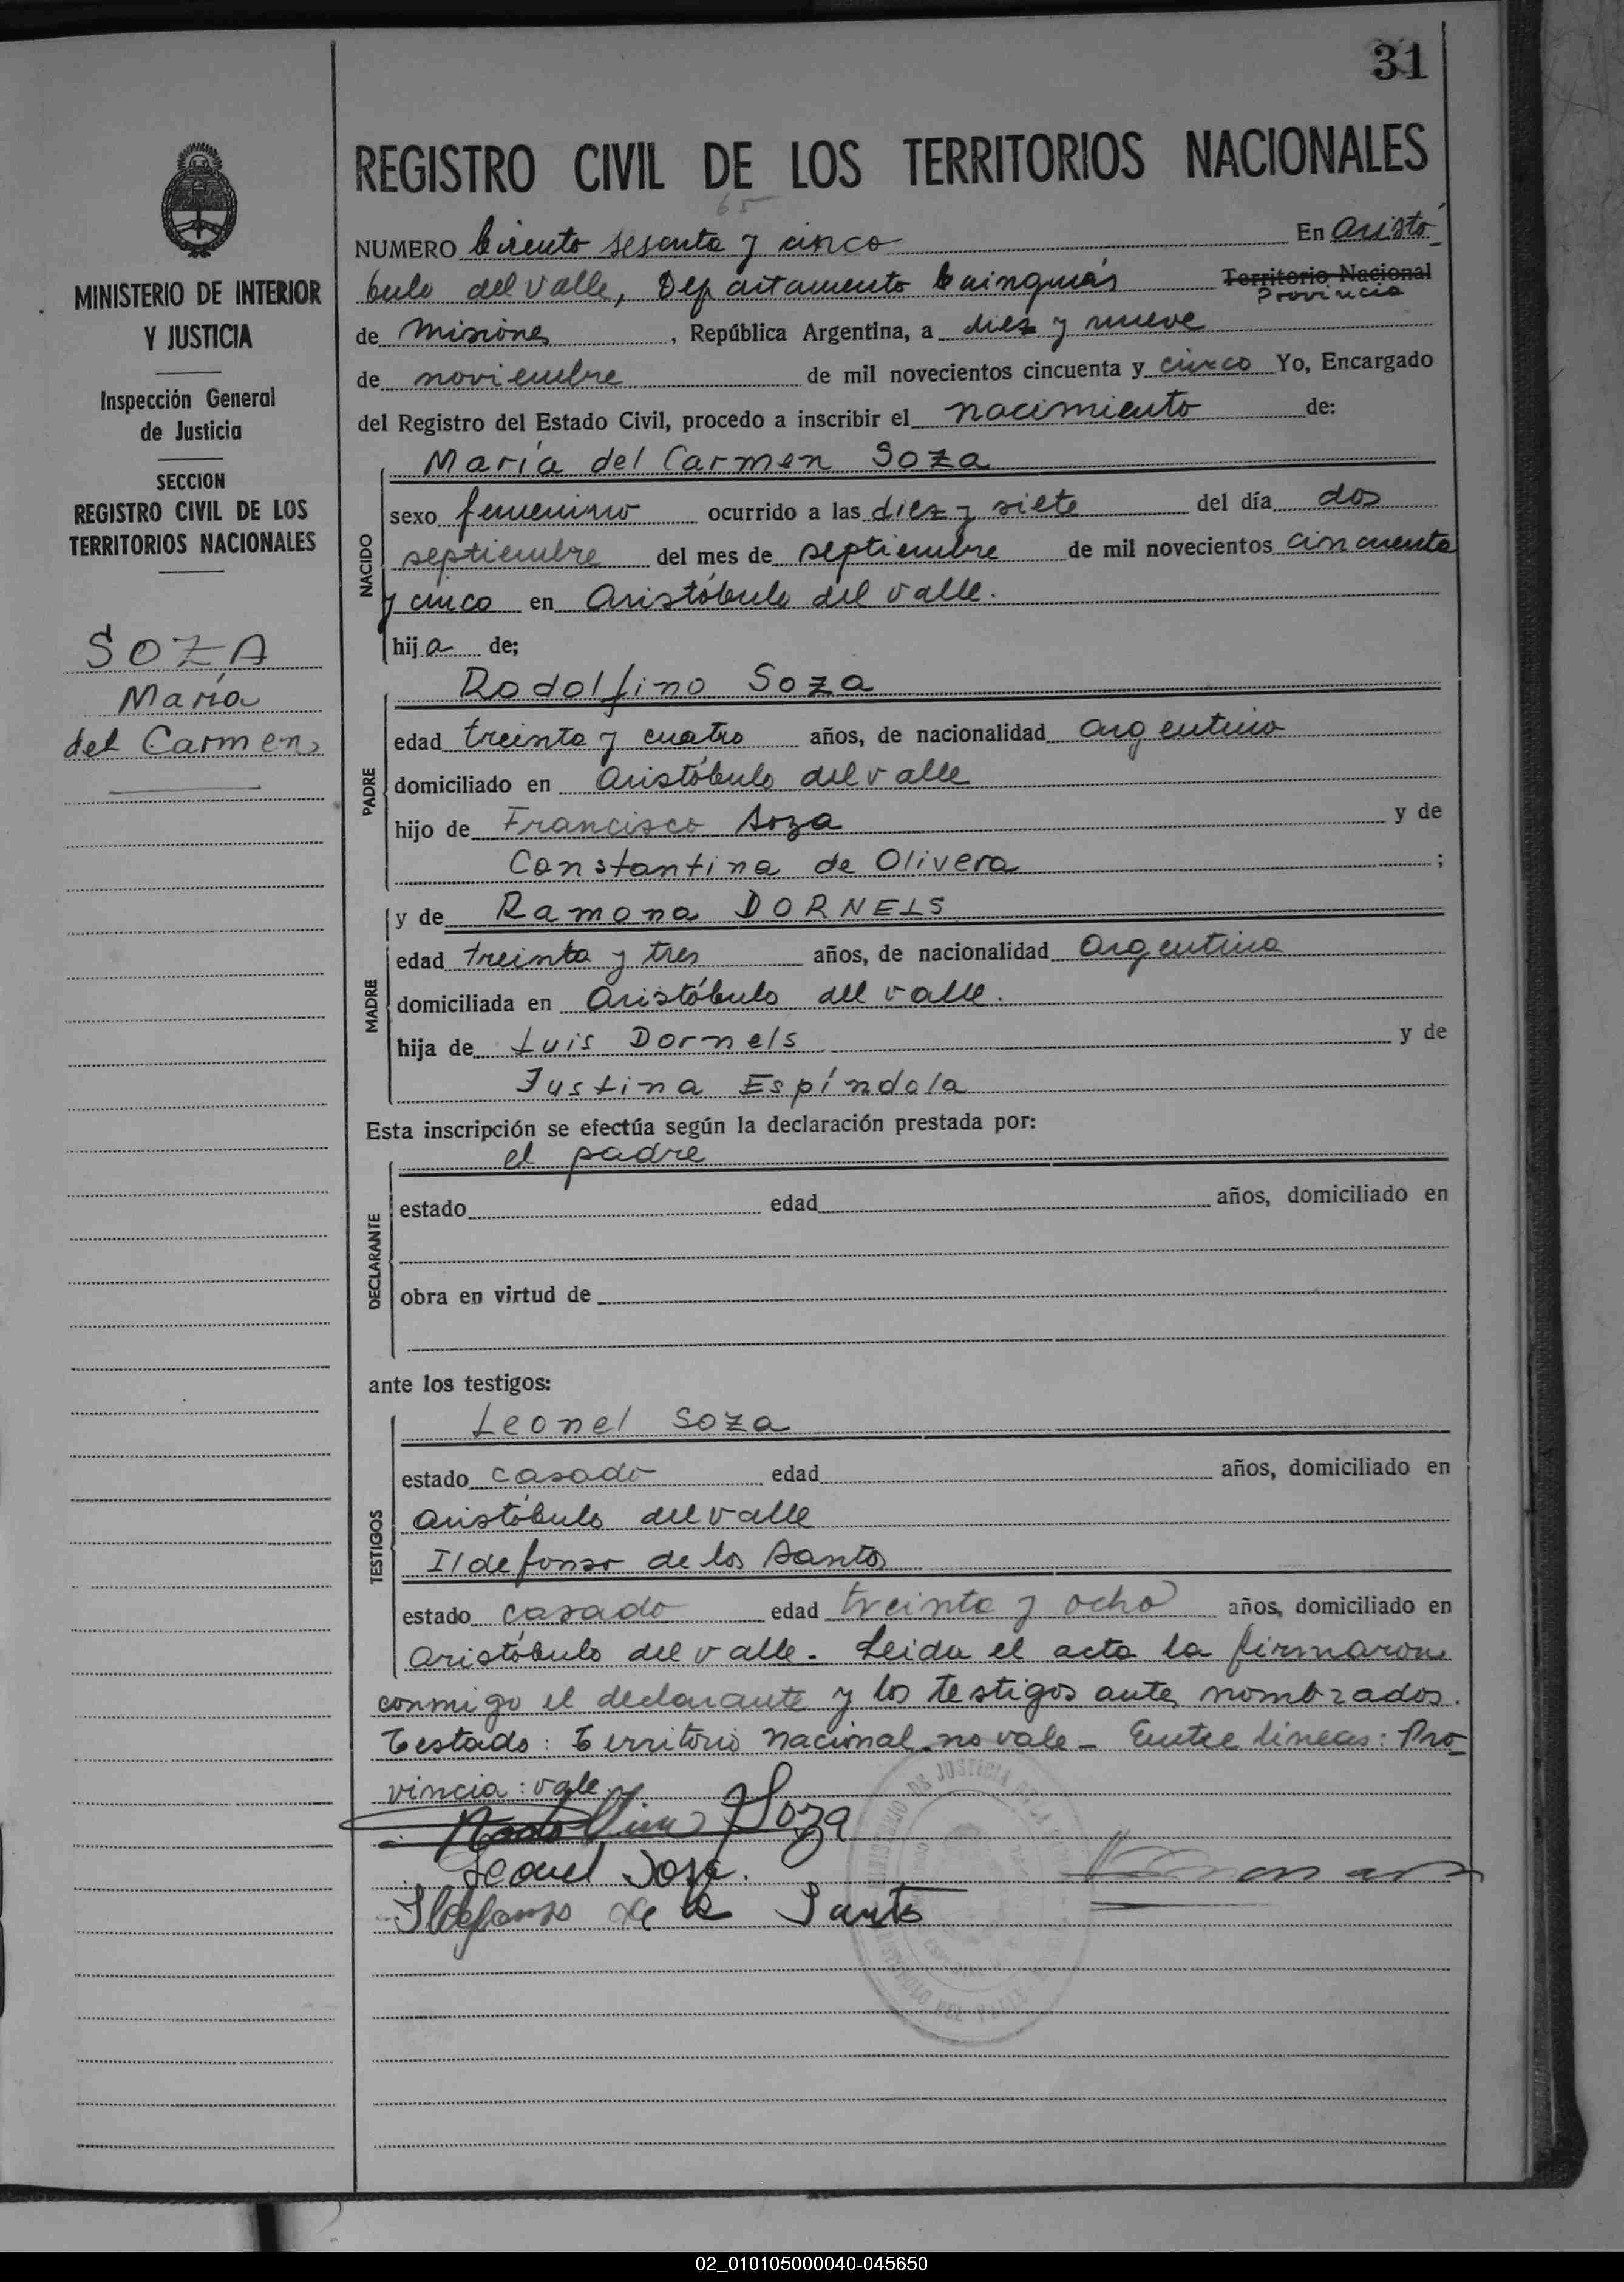 31
REGISTRO CIVIL DE LOS TERRITORIOS NACIONALES
65
NUMERO Ciento sesenta y cinco En Aristó-
bulo del Valle, Departamento Cainguás Territorio Nacional
Provincia
de Misiones, República Argentina, a diez y nueve
de noviembre de mil novecientos cincuenta y cinco Yo, Encargado
del Registro del Estado Civil, procedo a inscribir el nacimiento de:
María del Carmen Soza
NACIDO
sexo femenino ocurrido a las diez y siete del día dos
septiembre del mes de septiembre de mil novecientos cincuenta
y cinco en Aristóbulo del Valle.
hija de;
PADRE
Rodolfino Soza
edad treinta y cuatro años, de nacionalidad Argentino
domiciliado en Aristóbulo del Valle
hijo de Francisco Soza y de
Constantina de Olivera ;
MADRE
y de Ramona DORNELS
edad treinta y tres años, de nacionalidad Argentina
domiciliada en Aristóbulo del Valle.
hija de Luis Dornels y de
Justina Espíndola
Esta inscripción se efectúa según la declaración prestada por:
DECLARANTE
el padre
estado edad años, domiciliado en
obra en virtud de
ante los testigos:
TESTIGOS
Leonel Soza
estado casado edad años, domiciliado en
Aristóbulo del Valle
Ildefonso de los Santos
estado casado edad treinta y ocho años, domiciliado en
Aristóbulo del Valle. Leida el acta la firmaron
conmigo el declarante y los testigos antes nombrados.
Testado: Territorio nacional no vale - Entre líneas: Pro-
vincia: vale
Soza
Leonel Soza.
Ildefonso de lo Santo
MINISTERIO DE INTERIOR
Y JUSTICIA
Inspección General
de Justicia
SECCION
REGISTRO CIVIL DE LOS
TERRITORIOS NACIONALES
SOZA
María
del Carmen
02_010105000040-045650